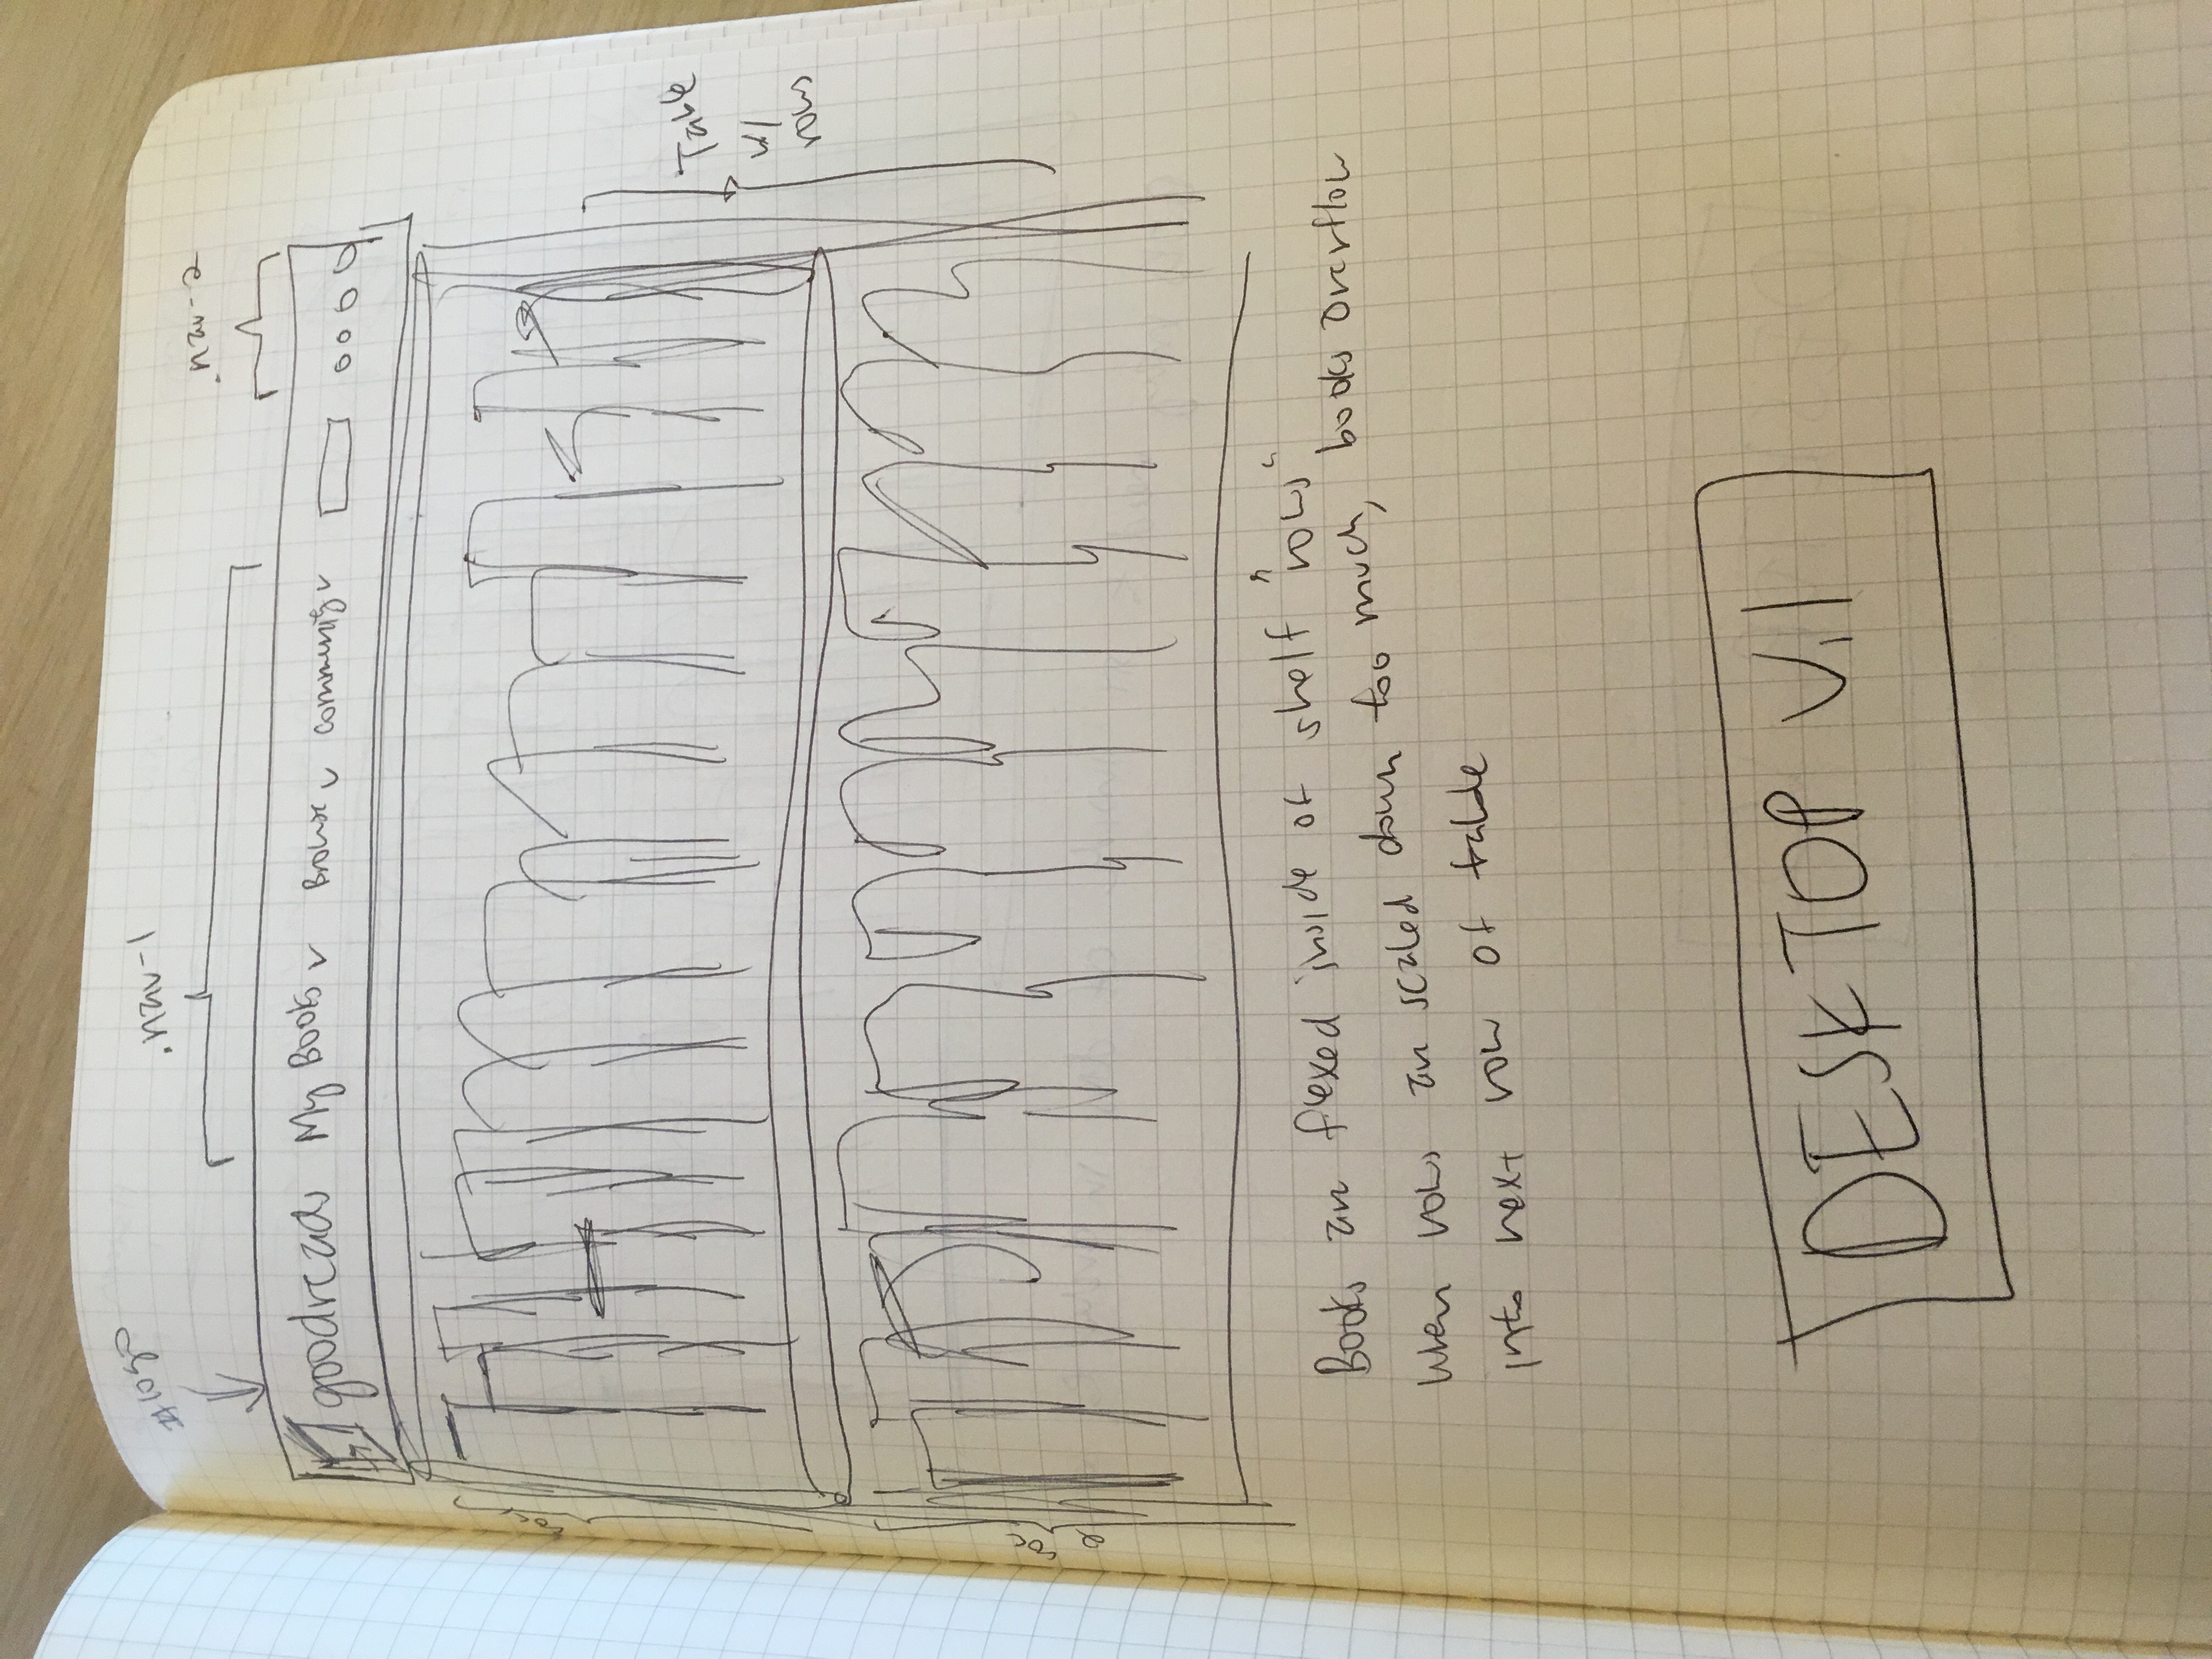 #logo
.nav-1
.nav-2
goodreads My Books v Browse v community v
Table
w/
rows
Books are flexed inside of shelf "rows"
When rows are scaled down too much, books overflow
into next row of table
DESKTOP V.1